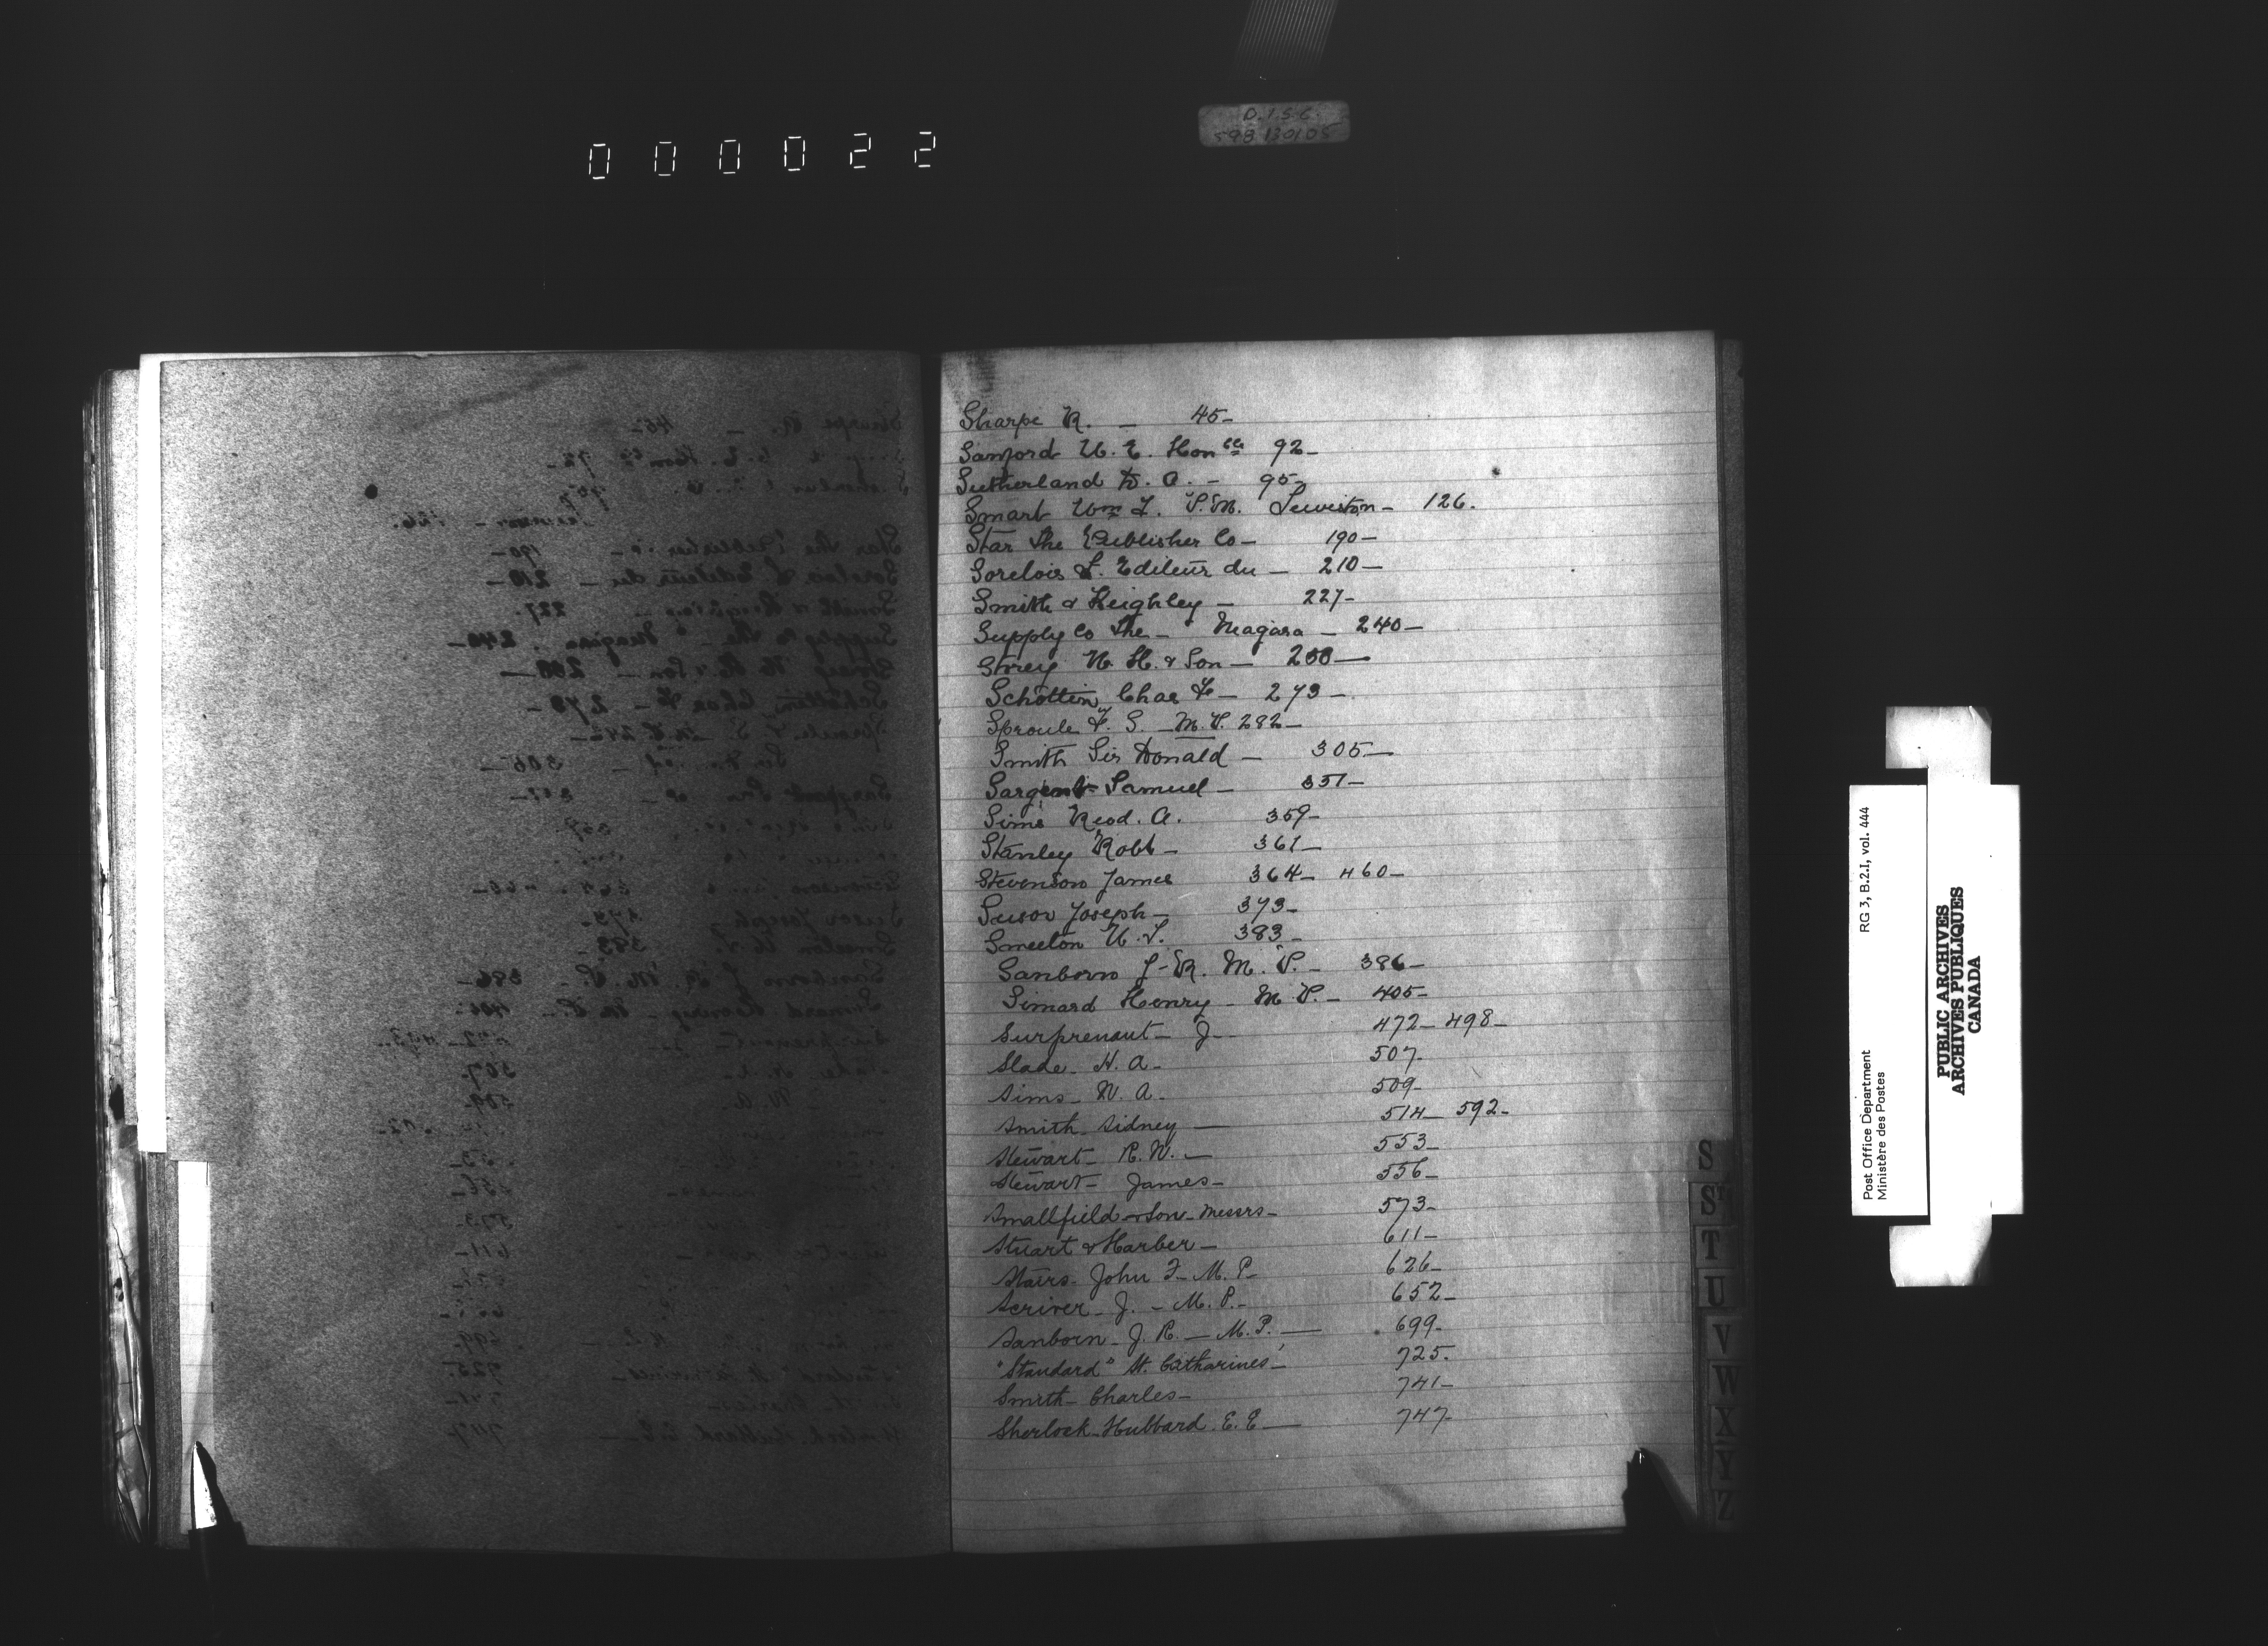 000022
D.I.S.C.
598 130105
Sharpe R. — 45-
Sanford W. E. Honble 92-
Sutherland D. A. - 95-
Smart Wm L. P.M. Lewiston- 126.
Star The Publisher Co- 190-
Sorelois L. Editeur du - 210-
Smith & Keighley - 227-
Supply Co The - Niagara - 240-
Storey W. H. & Son - 258-
Schöttin Chas F- 273-
Sproule F. S. - M.P. 282-
Smith Sir Donald - 305-
Sargent Samuel - 351-
Sims Reod. A. 359-
Stanley Robt - 361-
Stevenson James 364- 460-
Joseph - 373-
Smeeton W. T. 383-
Sanborn J-R. M.P. - 386-
Simard Henry - M.P. - 405-
Surprenant- J- 472- 498-
Slade- H. A- 507-
Sims- W. A- 509-
Smith- Sidney — 514- 592-
Stewart- R. W. — 553-
Stewart- James- 556-
Smallfield & Son- Messrs- 573-
Stuart & Harber- 611-
Stairs- John F- M. P- 626-
Scriver- J. - M. P.- 652-
Sanborn- J. R. — M. P. — 699-
"Standard" St. Catharines- 725.
Smith- Charles- 741-
Sherlock- Hubbard. E. E — 747-
S
ST
T
U
V
W
X
Y
Z
RG 3, B.2.I, vol. 444
Post Office Department
Ministère des Postes
PUBLIC ARCHIVES
ARCHIVES PUBLIQUES
CANADA